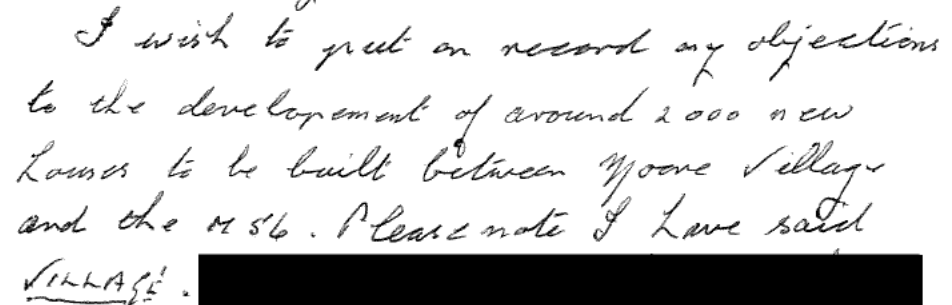 I wish to put on record my objections
to the developement of around 2000 new
houses to be built between Moore Village
and the M56. Please note I have said
VILLAGE.